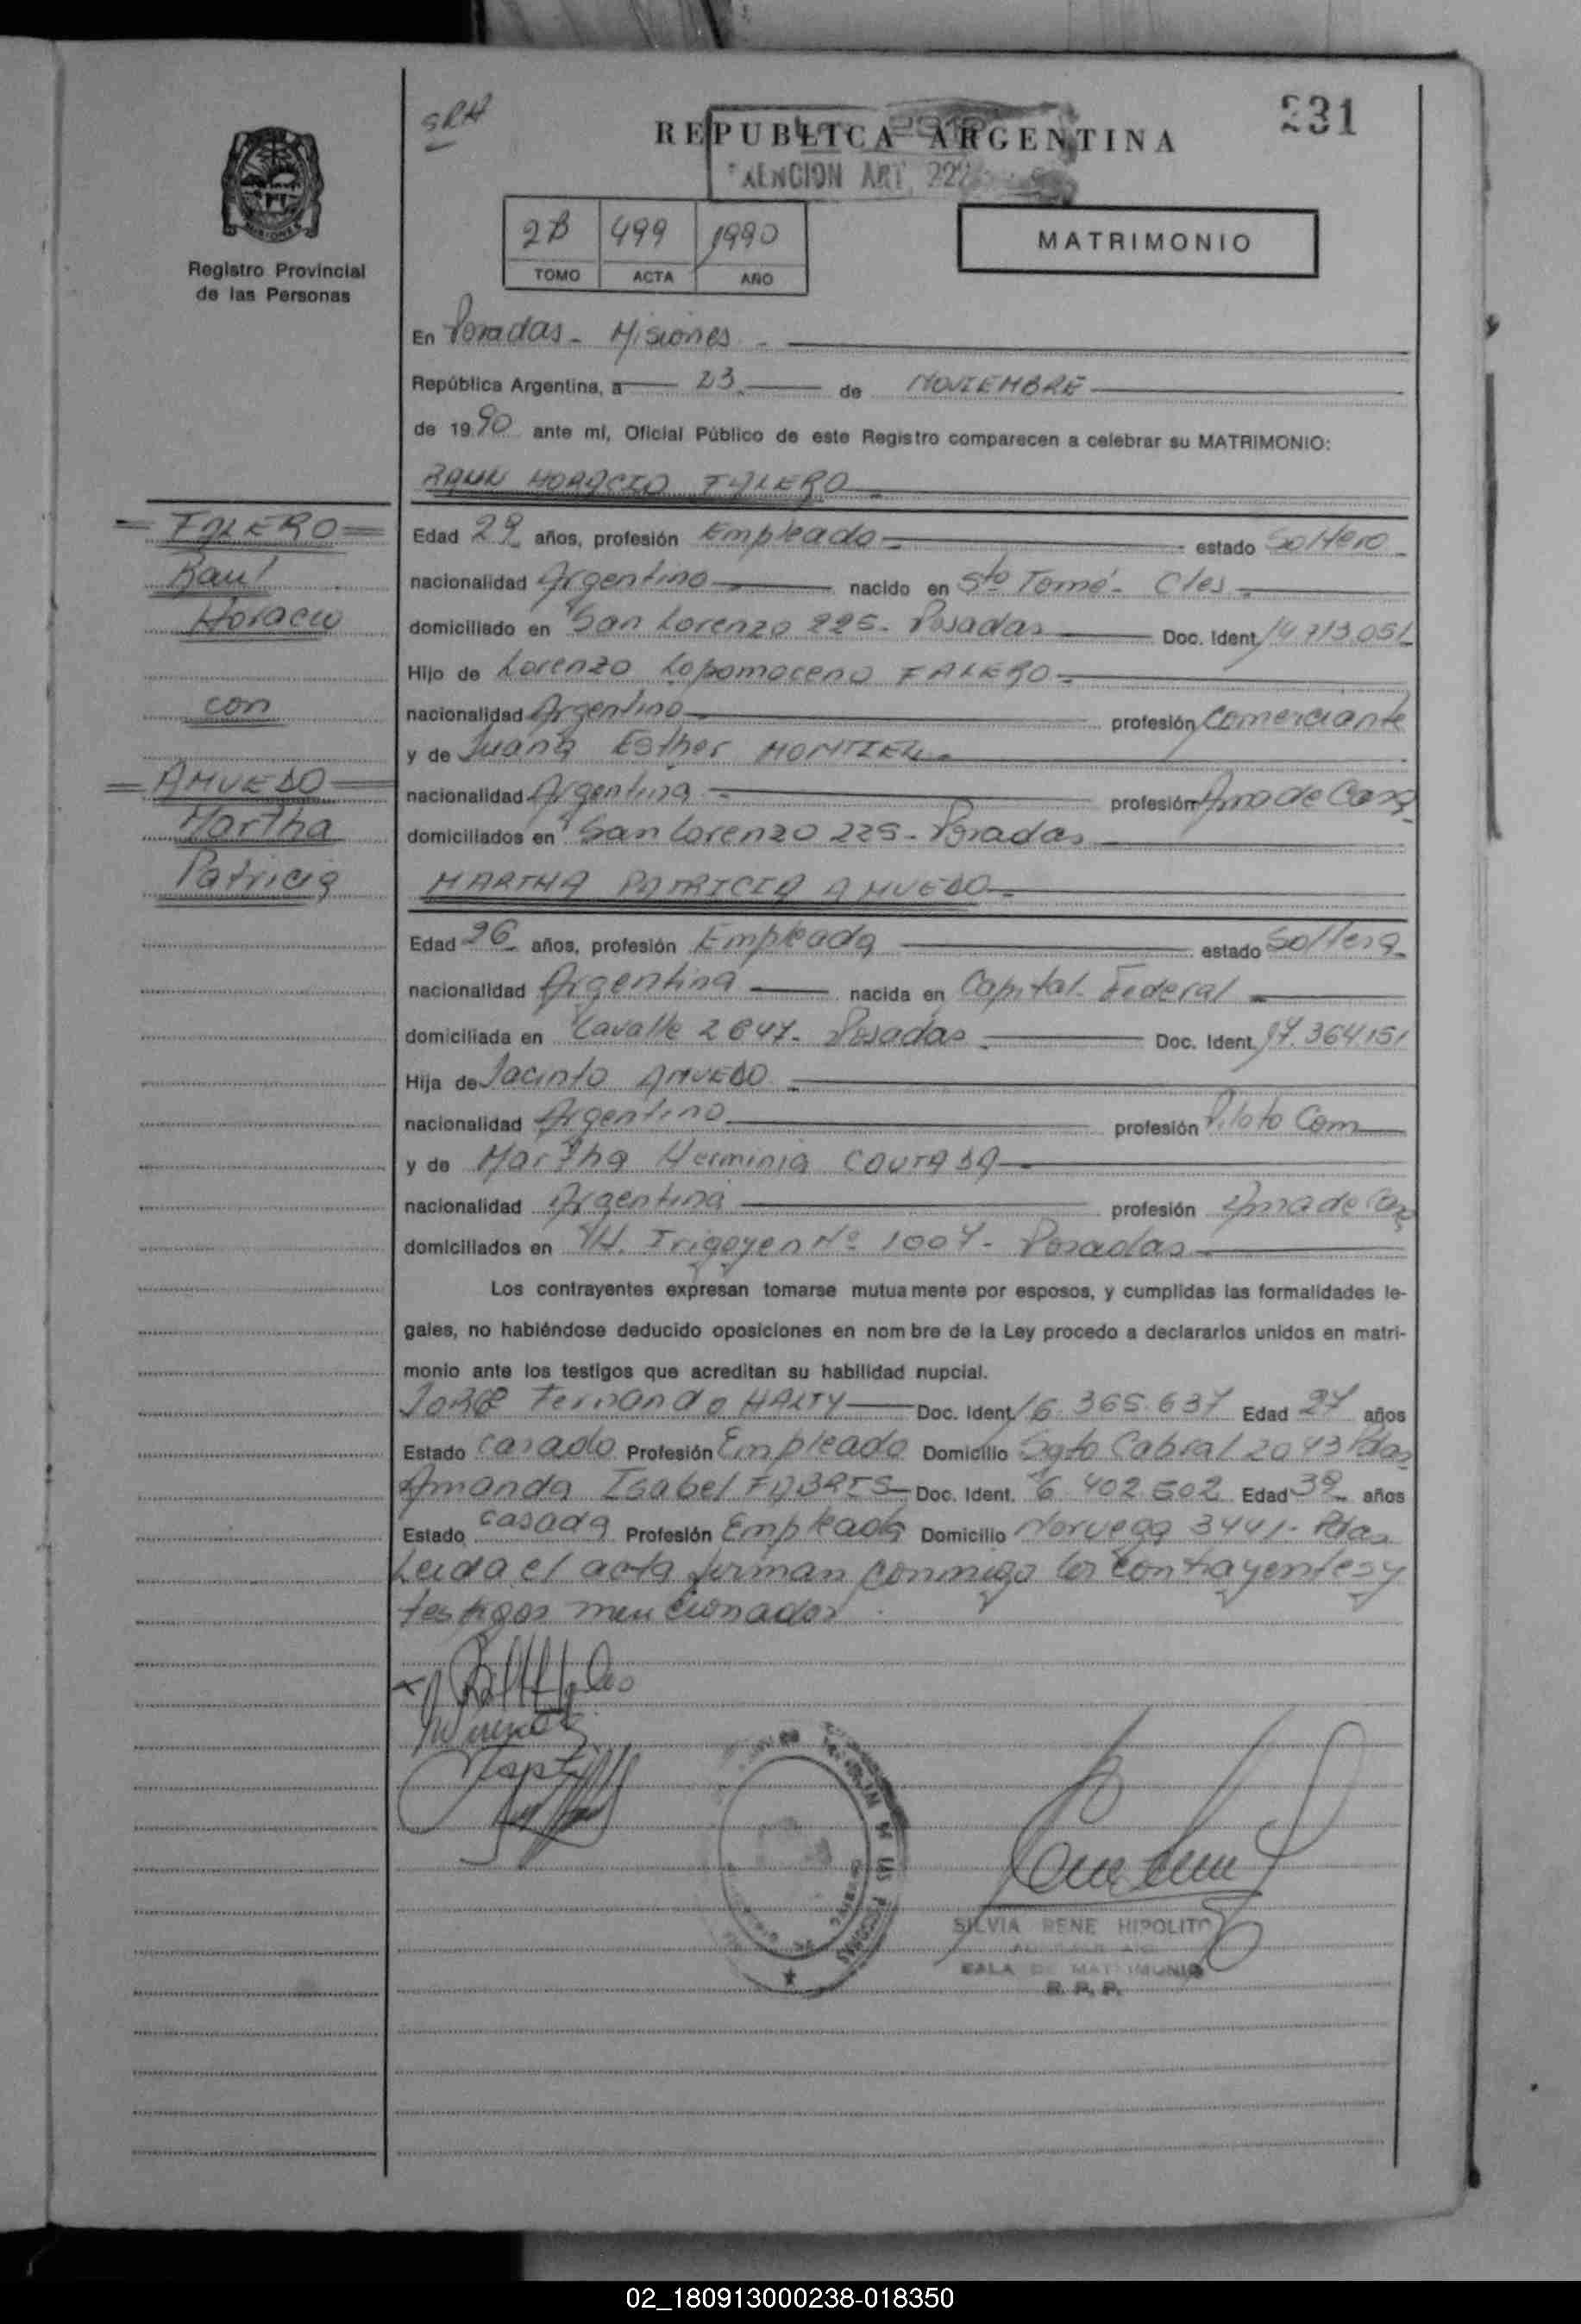 SRH
231
REPUBLICA ARGENTINA
ART. 222
2B 499 1990
TOMO ACTA AÑO
MATRIMONIO
Registro Provincial
de las Personas
En Posadas - Misiones -
República Argentina, a 23 de NOVIEMBRE
de 1990 ante mí, Oficial Público de este Registro comparecen a celebrar su MATRIMONIO:
RAUL HORACIO FALERO
= FALERO =
Raul
Horacio
con
= AMUEDO =
Martha
Patricia
Edad 29 años, profesión Empleado estado Soltero
nacionalidad Argentino nacido en Sto Tomé - Ctes
domiciliado en San Lorenzo 225 - Posadas Doc. Ident. 14.713.051
Hijo de Lorenzo Lopomoceno FALERO
nacionalidad Argentino profesión Comerciante
y de Juana Esther MONTIEL
nacionalidad Argentina profesión Ama de Casa
domiciliados en San Lorenzo 225 - Posadas
MARTHA PATRICIA AMUEDO
Edad 26 años, profesión Empleada estado Soltera
nacionalidad Argentina nacida en Capital Federal
domiciliada en Lavalle 2647 - Posadas Doc. Ident. 17.364.151
Hija de Jacinto AMUEDO
nacionalidad Argentino profesión Piloto Com
y de Martha Herminia COUTADA
nacionalidad Argentina profesión Ama de Casa
domiciliados en H. Irigoyen Nº 1007 - Posadas
Los contrayentes expresan tomarse mutuamente por esposos, y cumplidas las formalidades le-
gales, no habiéndose deducido oposiciones en nombre de la Ley procedo a declararlos unidos en matri-
monio ante los testigos que acreditan su habilidad nupcial.
Jorge Fernando HALTY Doc. Ident. 16.365.637 Edad 27 años
Estado casado Profesión Empleado Domicilio Sgto Cabral 2043 Pdas
Amanda Isabel FABRIS Doc. Ident. 6.402.502 Edad 39 años
Estado casada Profesión Empleada Domicilio Noruega 3441 - Pdas
Leida el acta firman conmigo los contrayentes y
testigos mencionados
SILVIA RENE HIPOLITO
SALA DE MATRIMONIO
R. P. P.
02_180913000238-018350